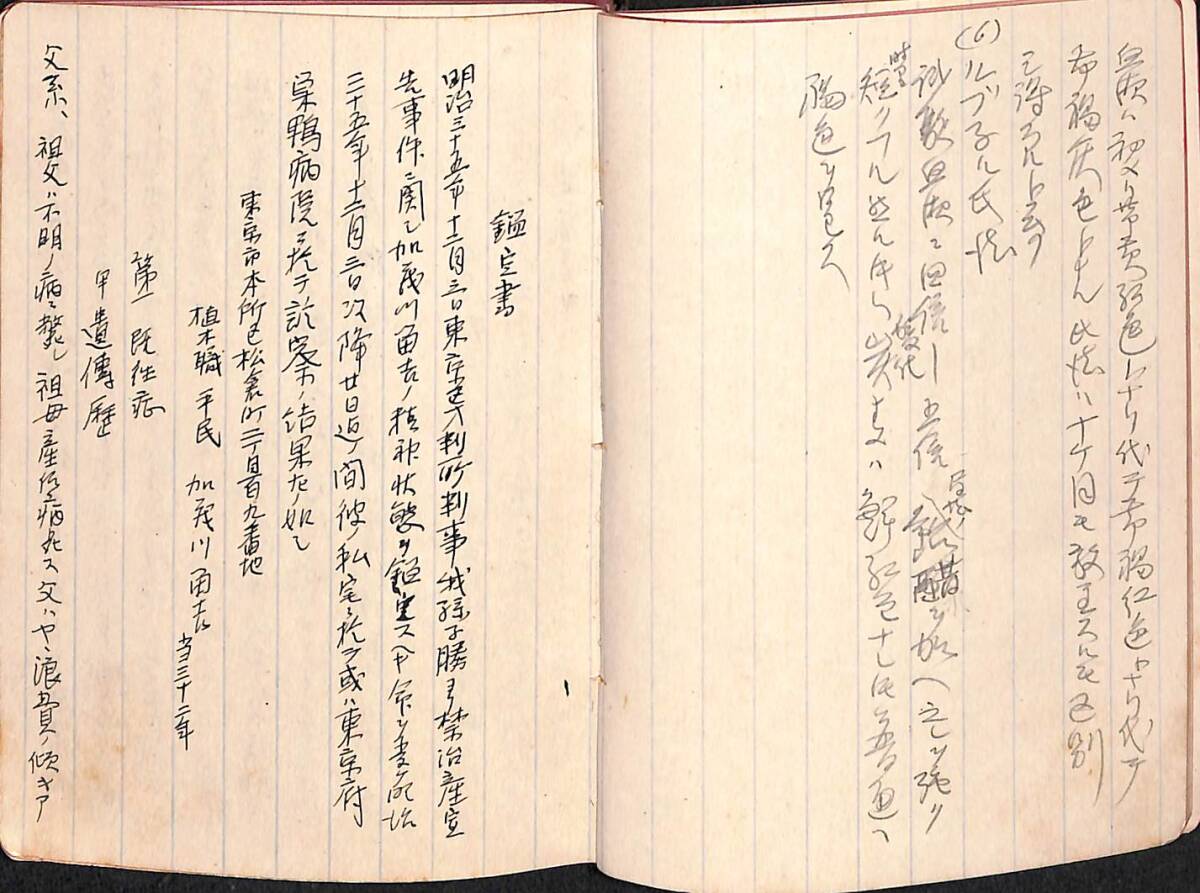 血液ハ初メ帯黄紅色トナリ代テ帯褐紅色トナリ代テ
帯褐灰色トナル此法ハ十ケ月モ放王スルモ区別
シ得ラルト云フ
(6) ルブネル氏法
試験血液ニ四倍―五倍ノ鉛醋ヲ加ヘ之ヲ強ク
短ク フル然ルトキハ炭素 ハ鮮紅色ナレ 普通ハ
褐色ヲ呈ス
鑑定書
明治三十五年十二月三日東京区裁判所判事我孫子勝ヨリ禁治産宣
告事件ニ関シ加茂川 吉ノ精神状態ヲ鑑定スヘキ命ヲ受ケ明治
三十五年十二月三日以降廿日迄ノ間彼ノ私宅ニ於テ或ハ東京府
巣鴨病院ニ於テ診察ノ結果左ノ如シ
東京市本所区松倉町二丁目百九番地
植木職 平民 加茂川 吉 当三十二年
第一 既往症
甲 遺傳歴
父系、祖父ハ不明ノ病ニ斃レ祖母産后病死ス父ハヤヽ浪費ノ傾キア